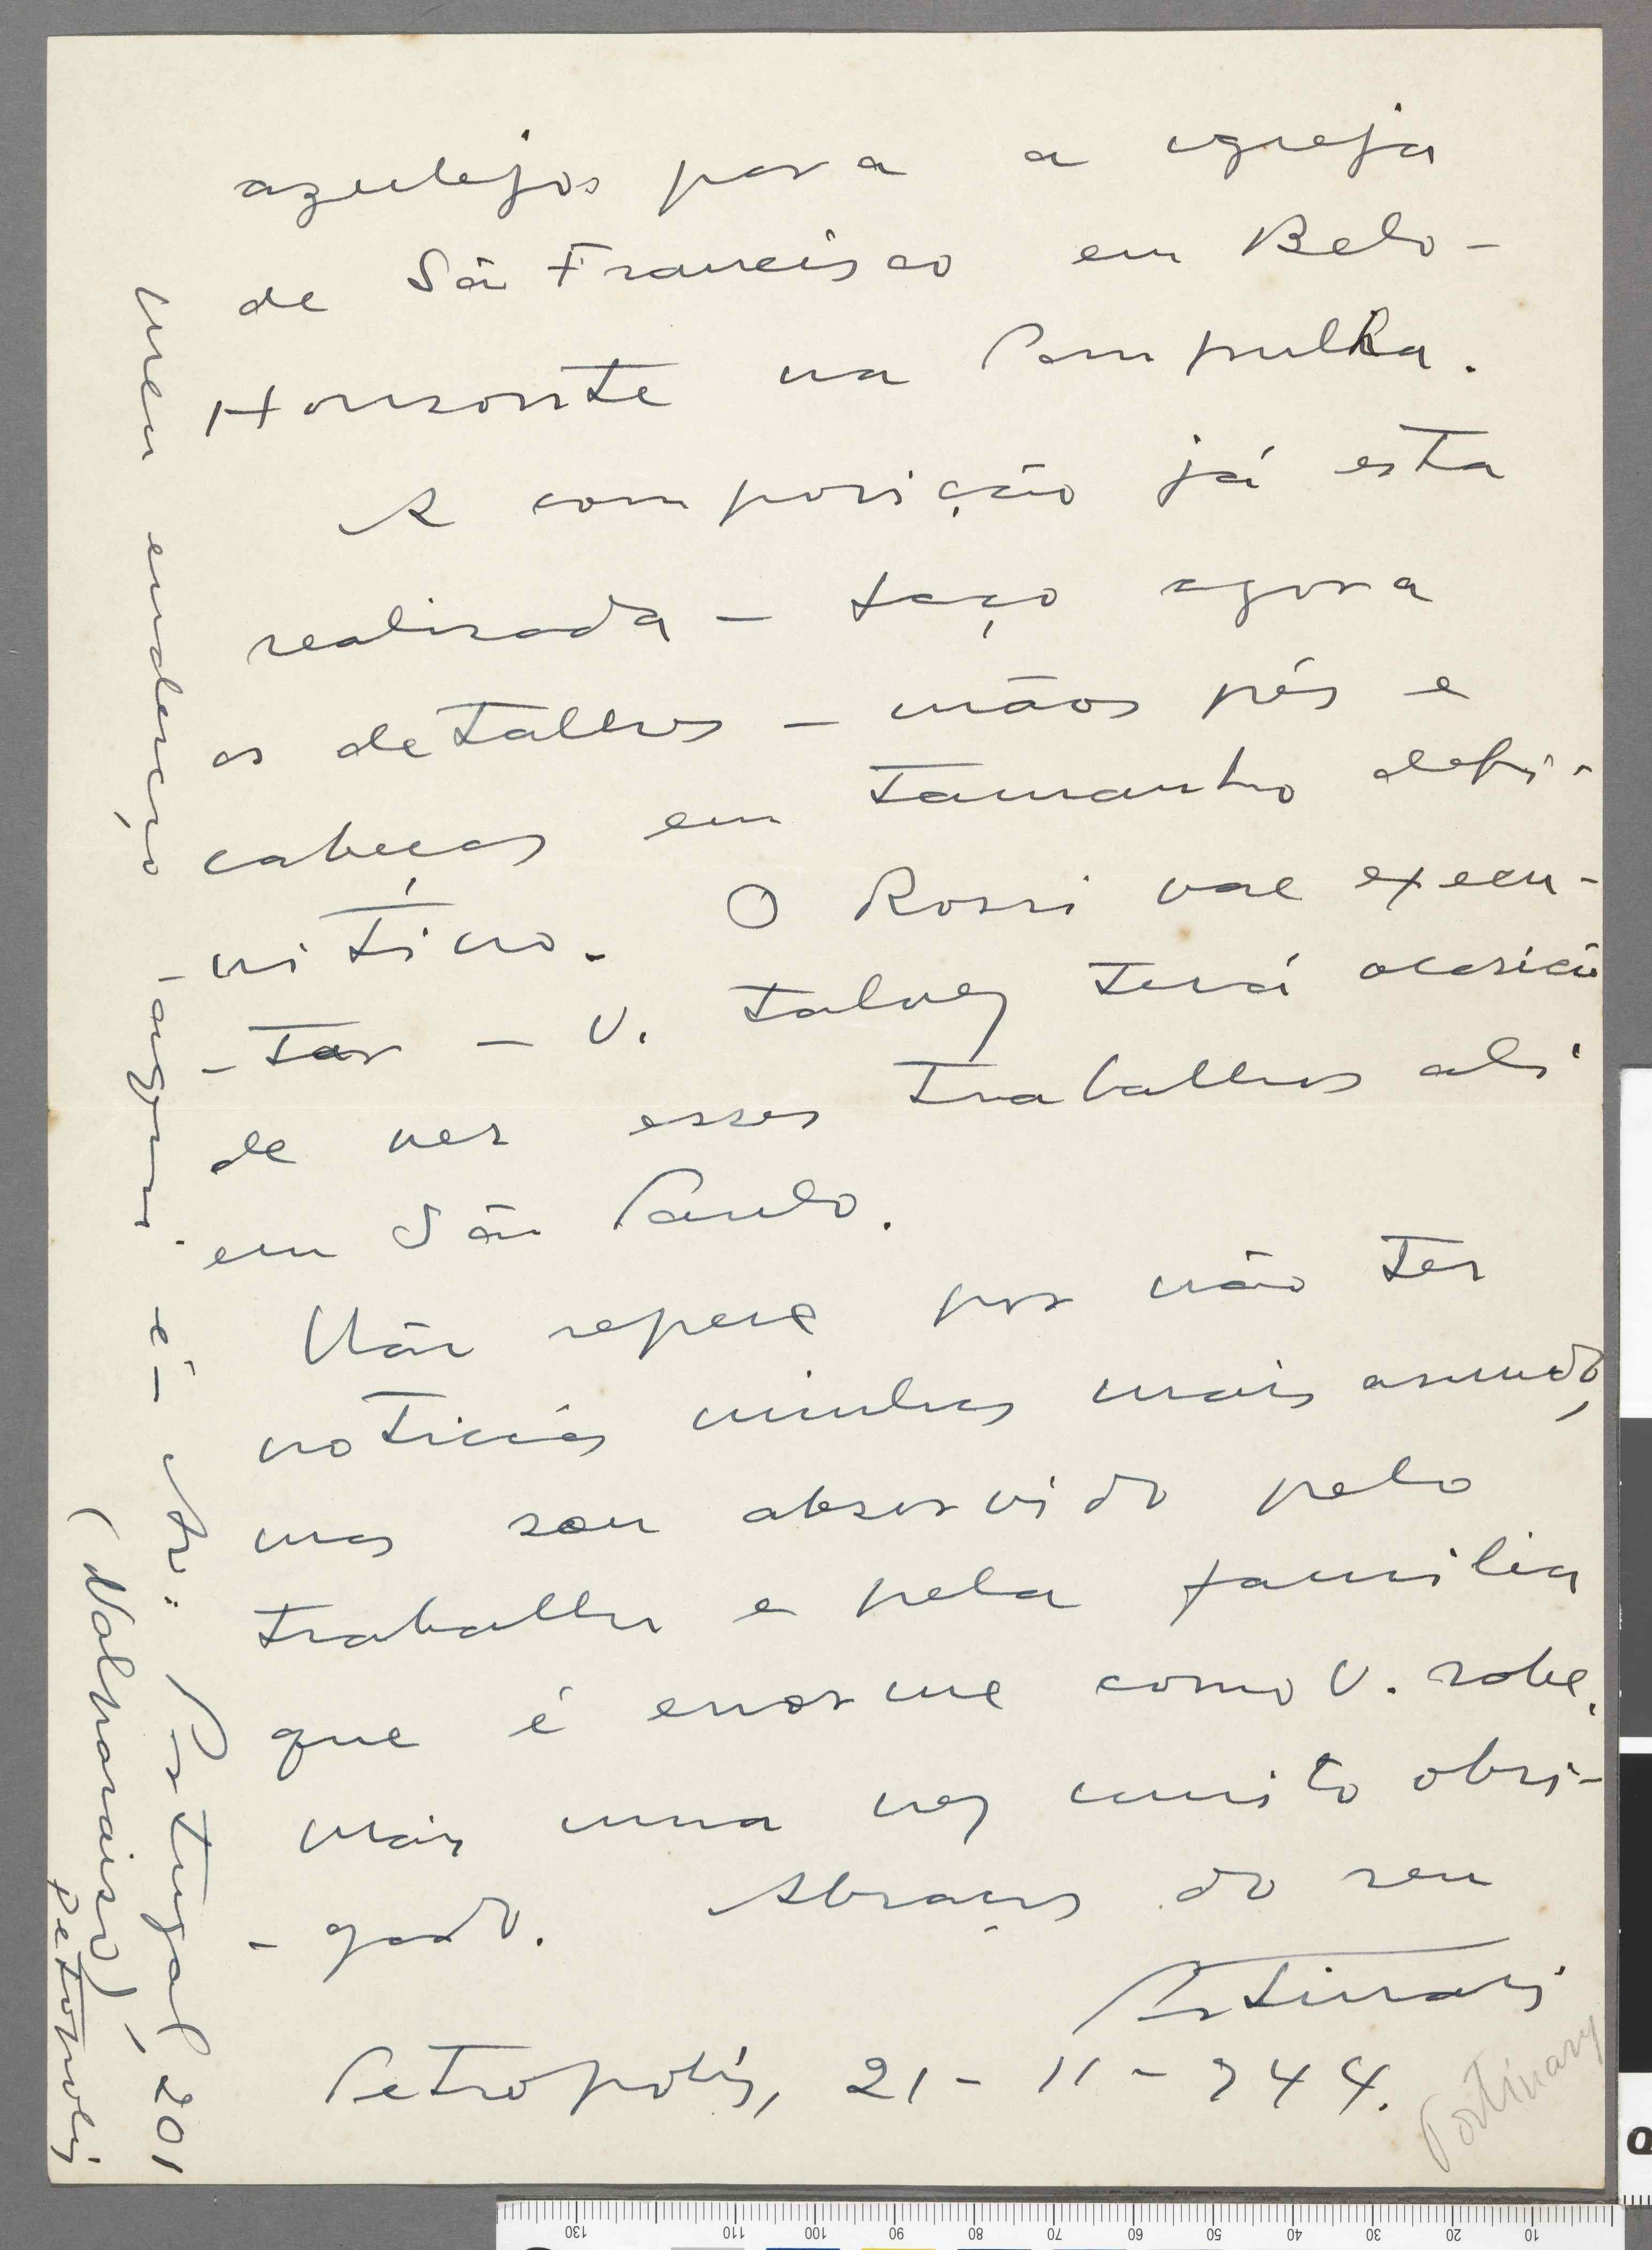 azulejos para a igreja
de São Francisco em Belo-
Horisonte na Pampulha.
A composição já esta
realisada - faço agora
os detalhes - mãos pés e
cabeças em tamanho defi-
nitivo. O Rossi vae execu-
-tar - V. talvez terá ocasião
de ver esses trabalhos ali
em São Paulo.
Não repare por não ter
noticias minhas mais amiudo,
mas sou absorvido pelo
trabalho e pela familia
que é enorme como V. sabe.
Mais uma vez muito obri-
-gado. Abraços do seu
Portinari
Petropolis, 21-11-944.
Portinary
Meu endereço -agora é- Av: Portugal, 201
(Valparaiso)-
Petropolis